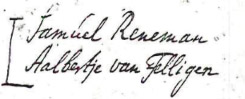 Samuel Reneman
Aalbertje van Felligen